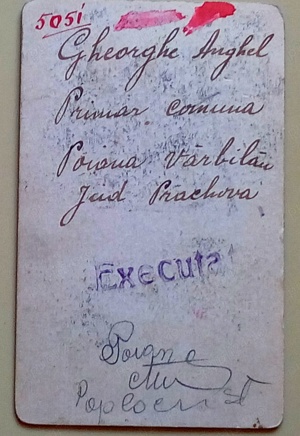 5051
Gheorghe Anghel
Primar comuna
Poiana Vărbilau
Jud Prachova
Executat
Poiana